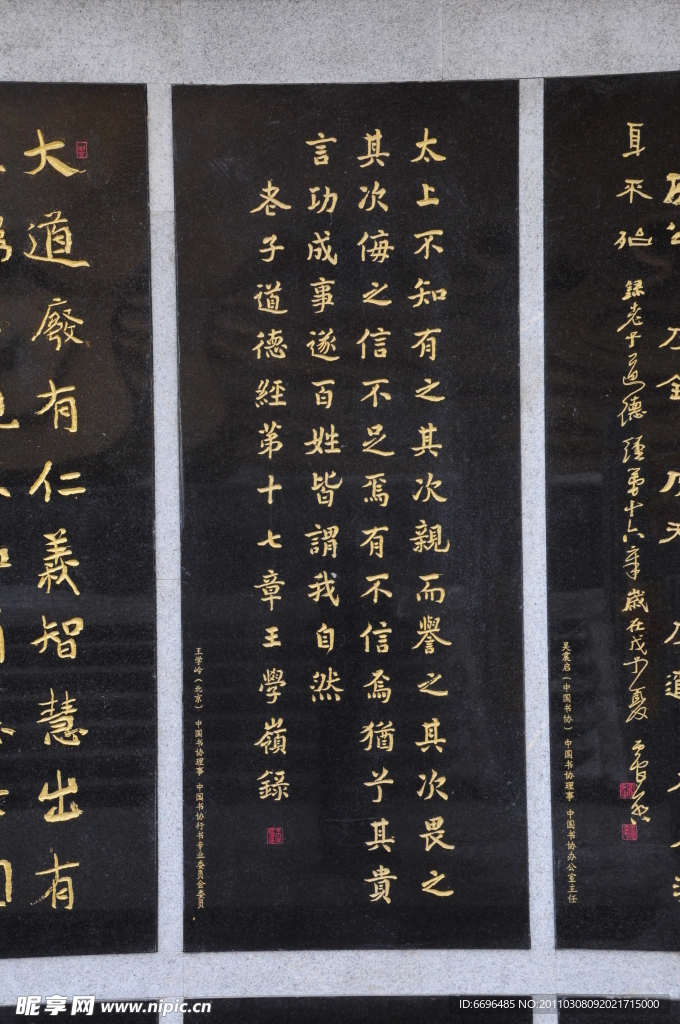 錄老子道德經第十六章歲在戊子夏
吴震启（中国书协） 中国书协理事 中国书协办公室主任
太上不知有之其次親而譽之其次畏之
其次侮之信不足焉有不信焉猶兮其貴
言功成事遂百姓皆謂我自然
老子道德經第十七章王學嶺錄
王学岭（北京） 中国书协理事 中国书协行书专业委员会委员
大道廢有仁義智慧出有
昵享网 www.nipic.cn
ID:6696485 NO:20110308092021715000